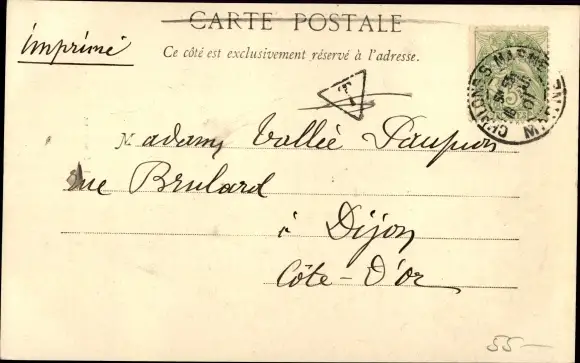 CARTE POSTALE
imprimé
Ce côté est exclusivement réservé à l'adresse.
T
CHALONS S. MARNE
MARNE
5
Madame Vallée Paupion
rue Brulard
à Dijon
Côte-d'Or
55-